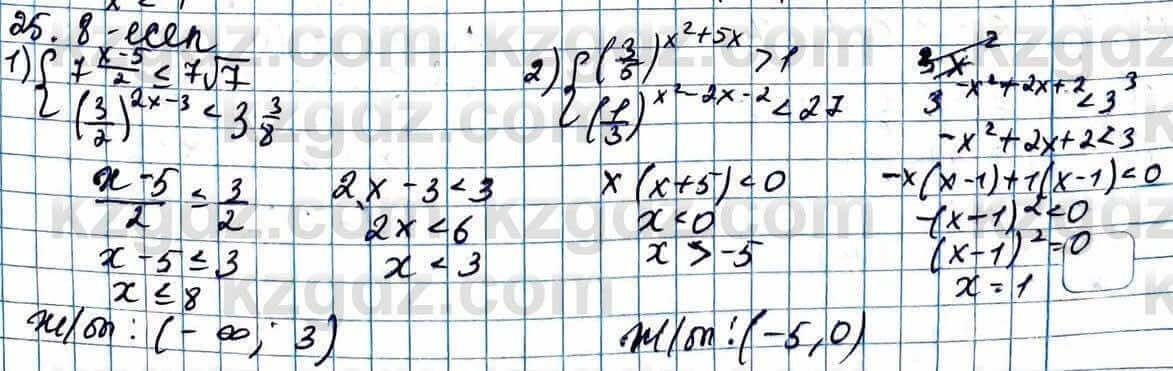 25.8-есеп
1) { 7^((x-5)/2) ≤ 7√7
(3/2)^(2x-3) < 3 3/8
(x-5)/2 ≤ 3/2
x-5 ≤ 3
x ≤ 8
2x-3 < 3
2x < 6
x < 3
Ж/бы: (-∞; 3)
2) { (3/5)^(x²+5x) > 1
(1/3)^(x²-2x-2) < 27
x(x+5) < 0
x < 0
x > -5
3^(-x²+2x+2) < 3³
-x²+2x+2 < 3
-x(x-1)+1(x-1) < 0
-(x-1)² < 0
(x-1)² = 0
x = 1
Ж/бы: (-5, 0)
kzgdz.com